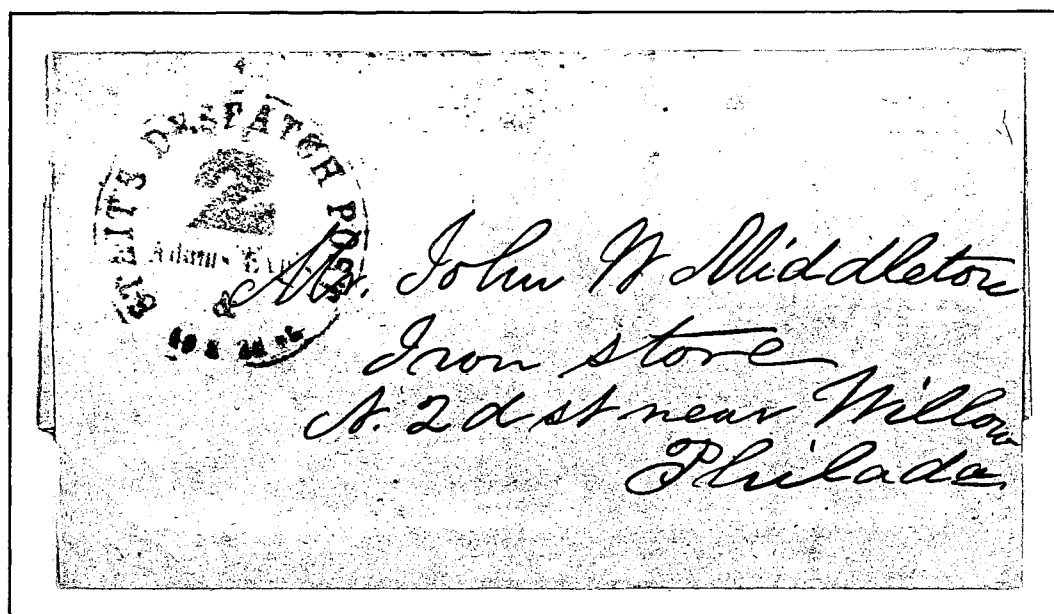 STEITS DESPATCH POST
2
Adams' Exp
&
Mr. John W Middleton
Iron store
N. 2d st near Willow
Philada.